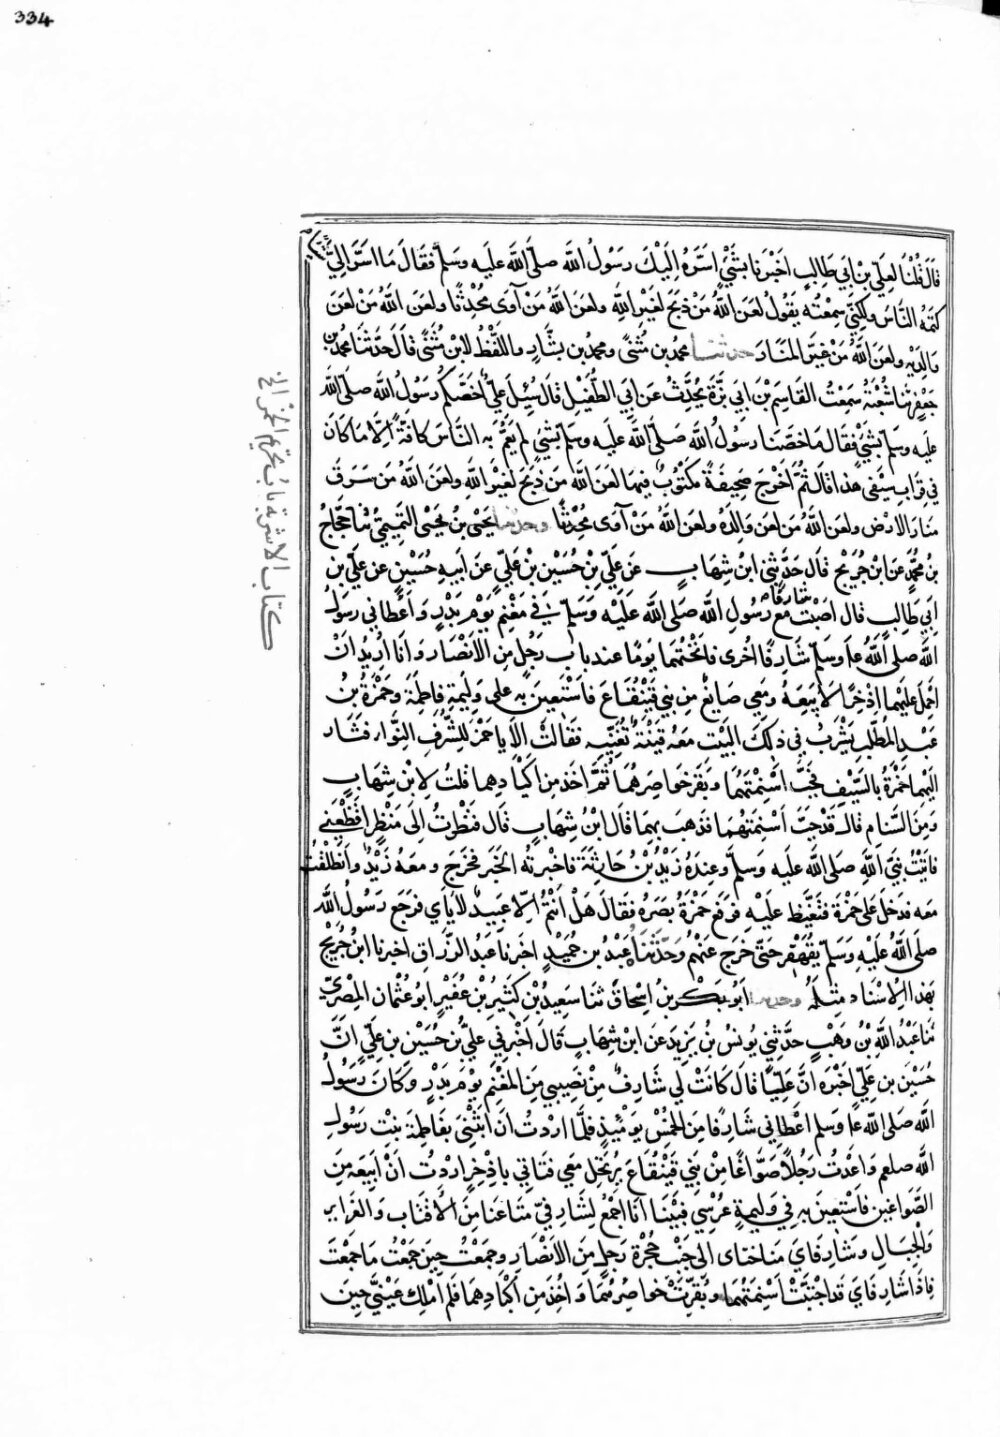 334
قال قلنا لعلي بن ابي طالب اخبرنا بشئ اسره اليك رسول الله صلى الله عليه وسلم فقال ما اسر الي
كتمه الناس ولكني سمعته يقول لعن الله من ذبح لغير الله ولعن الله من آوى محدثا ولعن الله من لعن
والديه ولعن الله من غير المنار حدثنا محمد بن مثنى ومحمد بن بشار واللفظ لابن مثنى قال حدثنا محمد بن
جعفر ثنا شعبة سمعت القاسم بن ابي بزة يحدث عن ابي الطفيل قال سئل علي أخصكم رسول الله صلى الله
عليه وسلم بشئ فقال ما خصنا رسول الله صلى الله عليه وسلم بشئ لم يعم به الناس كافة الا ما كان
في قراب سيفي هذا قال ثم اخرج صحيفة مكتوب فيها لعن الله من ذبح لغير الله ولعن الله من سرق
منار الارض ولعن الله من لعن والده ولعن الله من آوى محدثا وحدثنا يحيى بن يحيى التميمي ثنا حجاج
بن محمد عن ابن جريج قال حدثني ابن شهاب عن علي بن حسين بن علي عن ابيه حسين عن علي بن
ابي طالب قال اصبت شارفا مع رسول الله صلى الله عليه وسلم في مغنم يوم بدر واعطاني رسول
الله صلى الله عا وسلم شارفا اخرى فانختهما يوما عند باب رجل من الانصار وانا اريد ان
احمل عليهما اذخرا لابيعه ومعي صايغ من بني قينقاع فاستعين به على وليمة فاطمة وحمزة بن
عبد المطلب يشرب في ذلك البيت معه قينة تغنيه فقالت الا يا حمز للشرف النواء فثار
اليهما حمزة بالسيف فجب اسنمتهما وبقر خواصرهما ثم اخذ من اكبادهما قلت لابن شهاب
ومن السنام قال قد جب اسنمتهما فذهب بهما قال ابن شهاب قال فنظرت الى منظر افظعني
فاتيت نبي الله صلى الله عليه وسلم وعنده زيد بن حارثة فاخبرته الخبر فخرج ومعه زيد وانطلقت
معه فدخل على حمزة فتغيظ عليه فرفع حمزة بصره فقال هل انتم الا عبيد لاباي فرجع رسول الله
صلى الله عليه وسلم يقهقر حتى خرج عنهم وحدثنا عبد بن حميد اخبرنا عبد الرزاق اخبرنا ابن جريج
بهذا الاسناد مثله وحدثنا ابو بكر بن اسحاق ثنا سعيد بن كثير بن عفير ابو عثمان المصري
ثنا عبد الله بن وهب حدثني يونس بن يزيد عن ابن شهاب قال اخبرني علي بن حسين بن علي ان
حسين بن علي اخبره ان عليا قال كانت لي شارف من نصيبي من المغنم يوم بدر وكان رسول
الله صلى الله عا وسلم اعطاني شارفا من الخمس يومئذ فلما اردت ان ابتني بفاطمة بنت رسول
الله صلعم واعدت رجلا صواغا من بني قينقاع يرتحل معي فناتي باذخر اردت ان ابيعه من
الصواغين فاستعين به في وليمة عرسي فبينا انا اجمع لشارفي متاعا من الاقتاب والغراير
والحبال وشارفاي مناختاي الى جنب حجرة رجل من الانصار وجمعت حين جمعت ما جمعت
فاذا شارفاي قد اجتبت اسنمتهما وبقرت خواصرهما واخذ من اكبادهما فلم املك عيني حين
كتاب الاشربة باب تحريم الخمر الخ